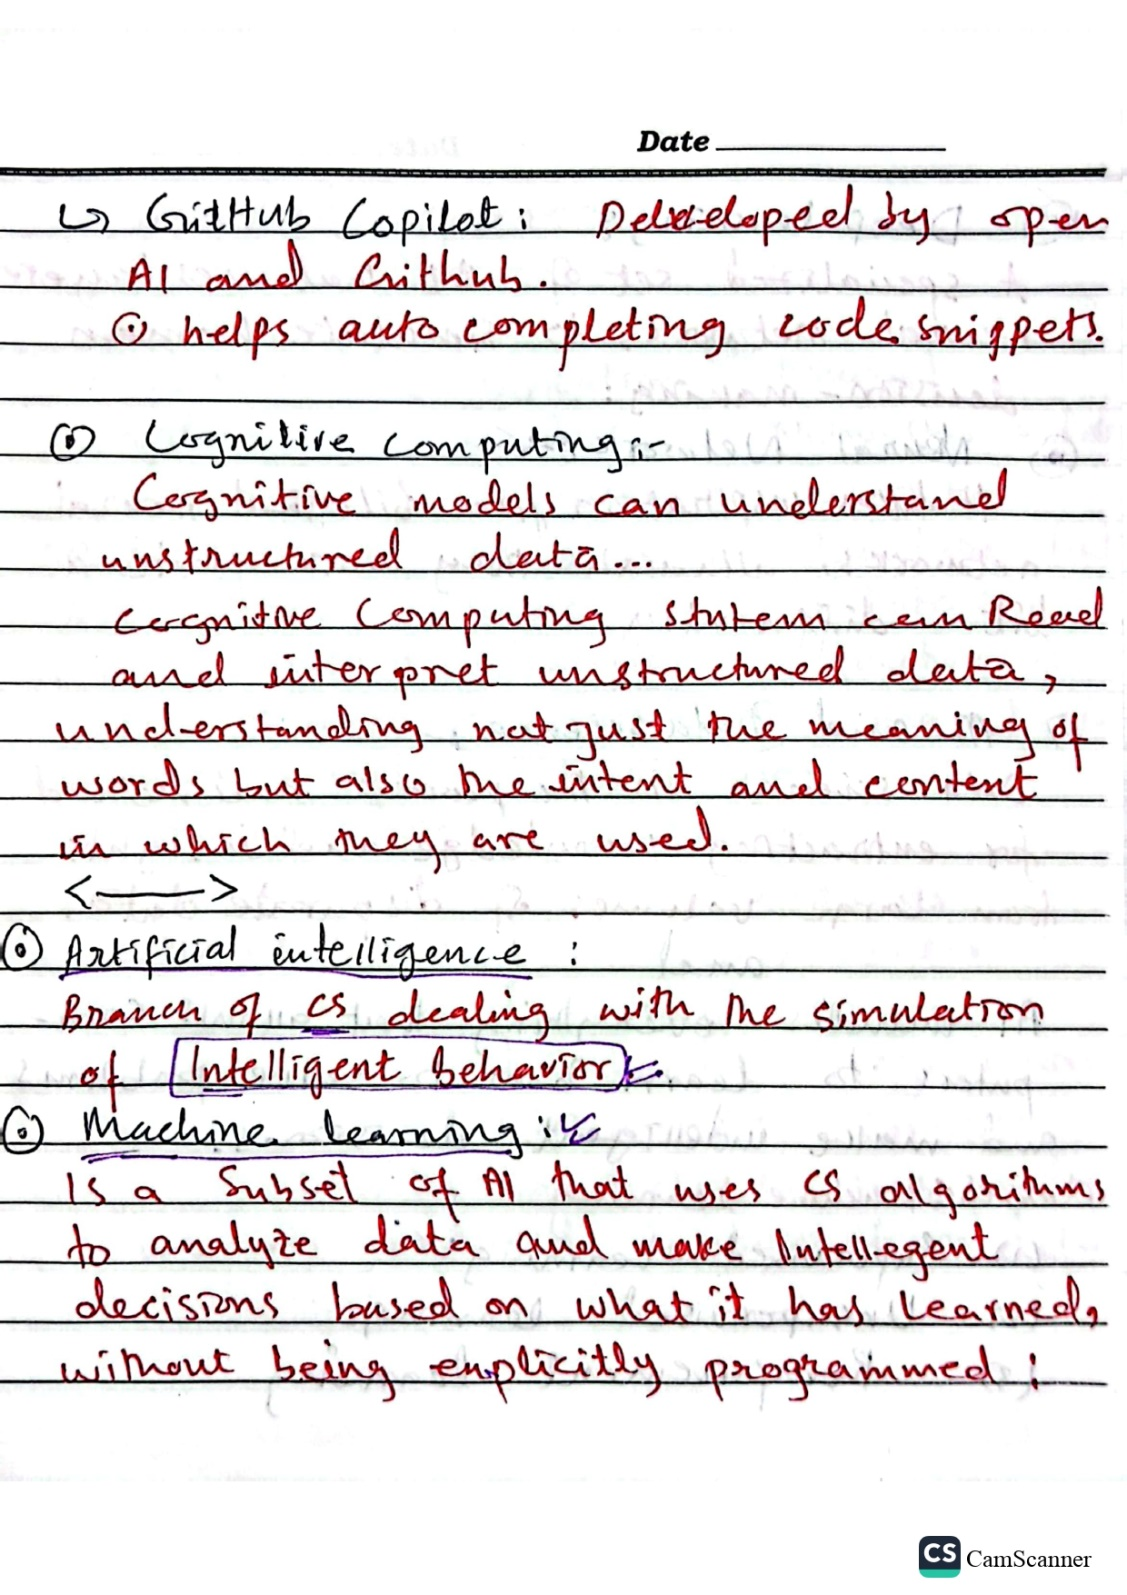 Date
↳ GitHub Copilot: Developed by open
AI and Github.
⊙ helps auto completing code snippets.
⊙ Cognitive computing:-
Cognitive models can understand
unstructured data...
Cognitive Computing can Read
and interpret unstructured data,
understanding not just the meaning of
words but also the intent and content
in which they are used.
<——>
⊙ Artificial intelligence :
Branch of CS dealing with the simulation
of Intelligent Behavior
⊙ Machine learning :
Is a Subset of AI that uses CS algorithms
to analyze data and make Intellegent
decisions based on what it has learned,
without being explicitly programmed :
CS CamScanner